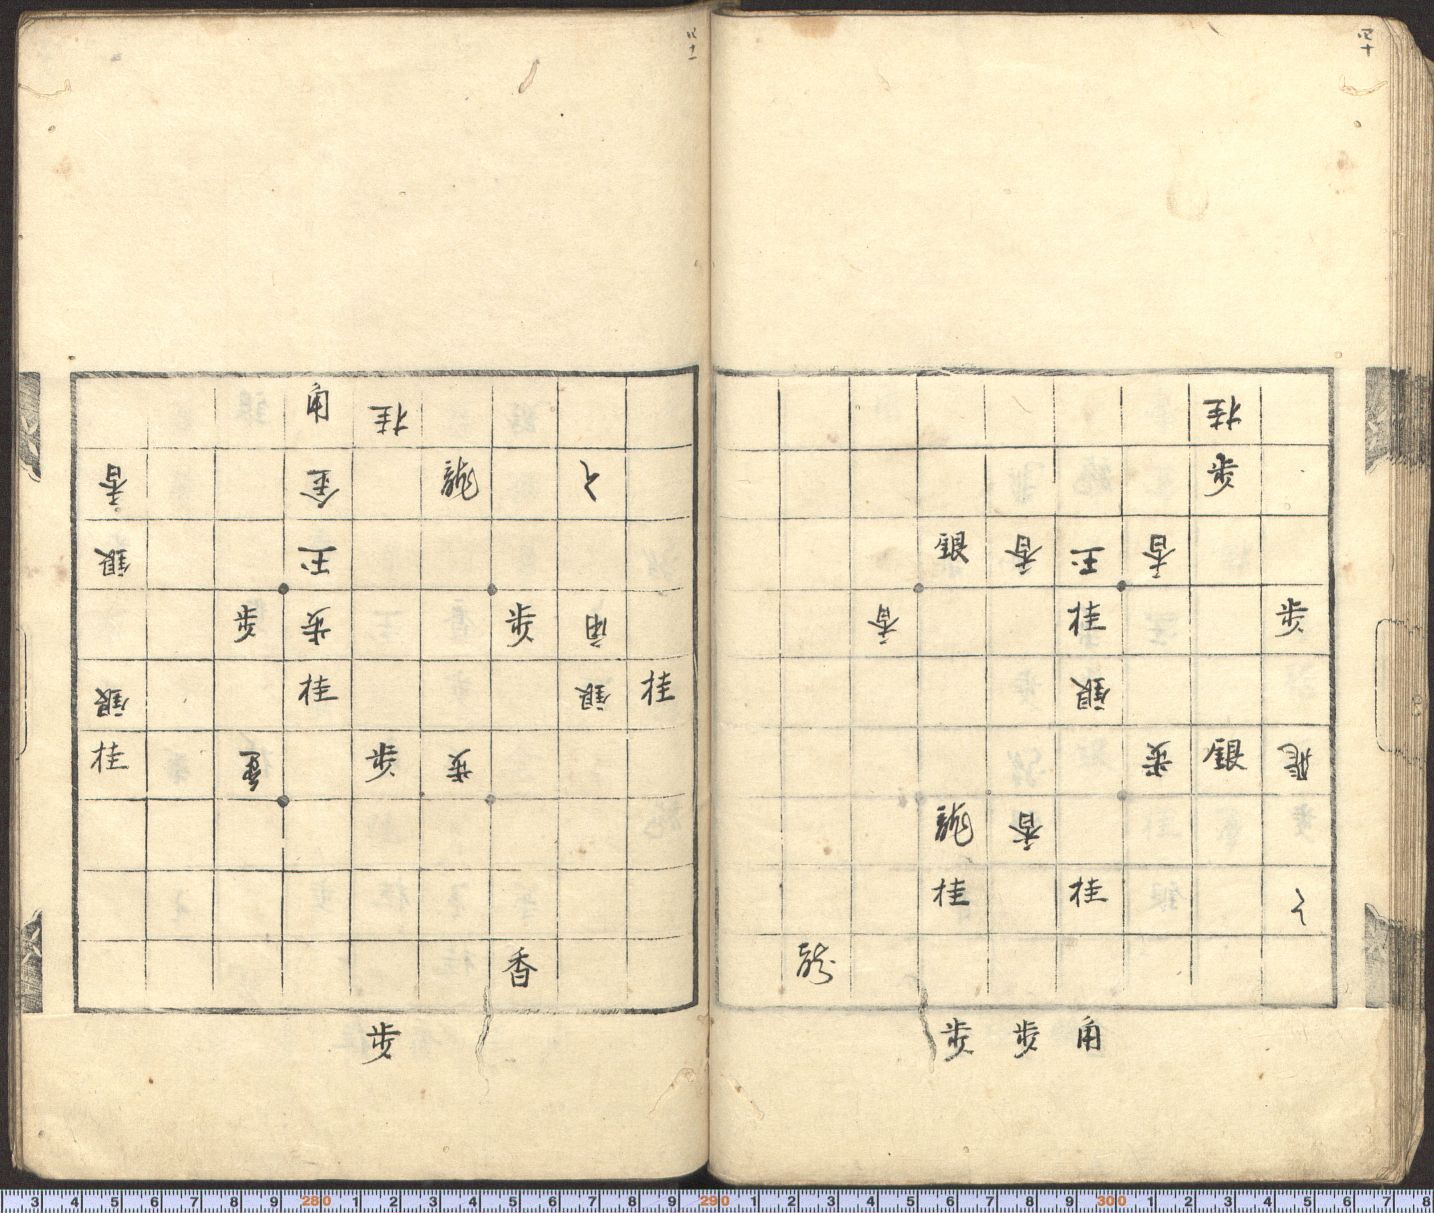 四十
桂
歩
銀 香 玉 香
香 桂 歩
銀
歩 銀 飛
龍馬 香
桂 桂 と
龍
歩 歩 角
四十一
角 桂
香 金 龍馬 と
銀 玉
歩 歩 歩 角
銀 桂 銀 桂
桂 金 歩 歩
香
歩